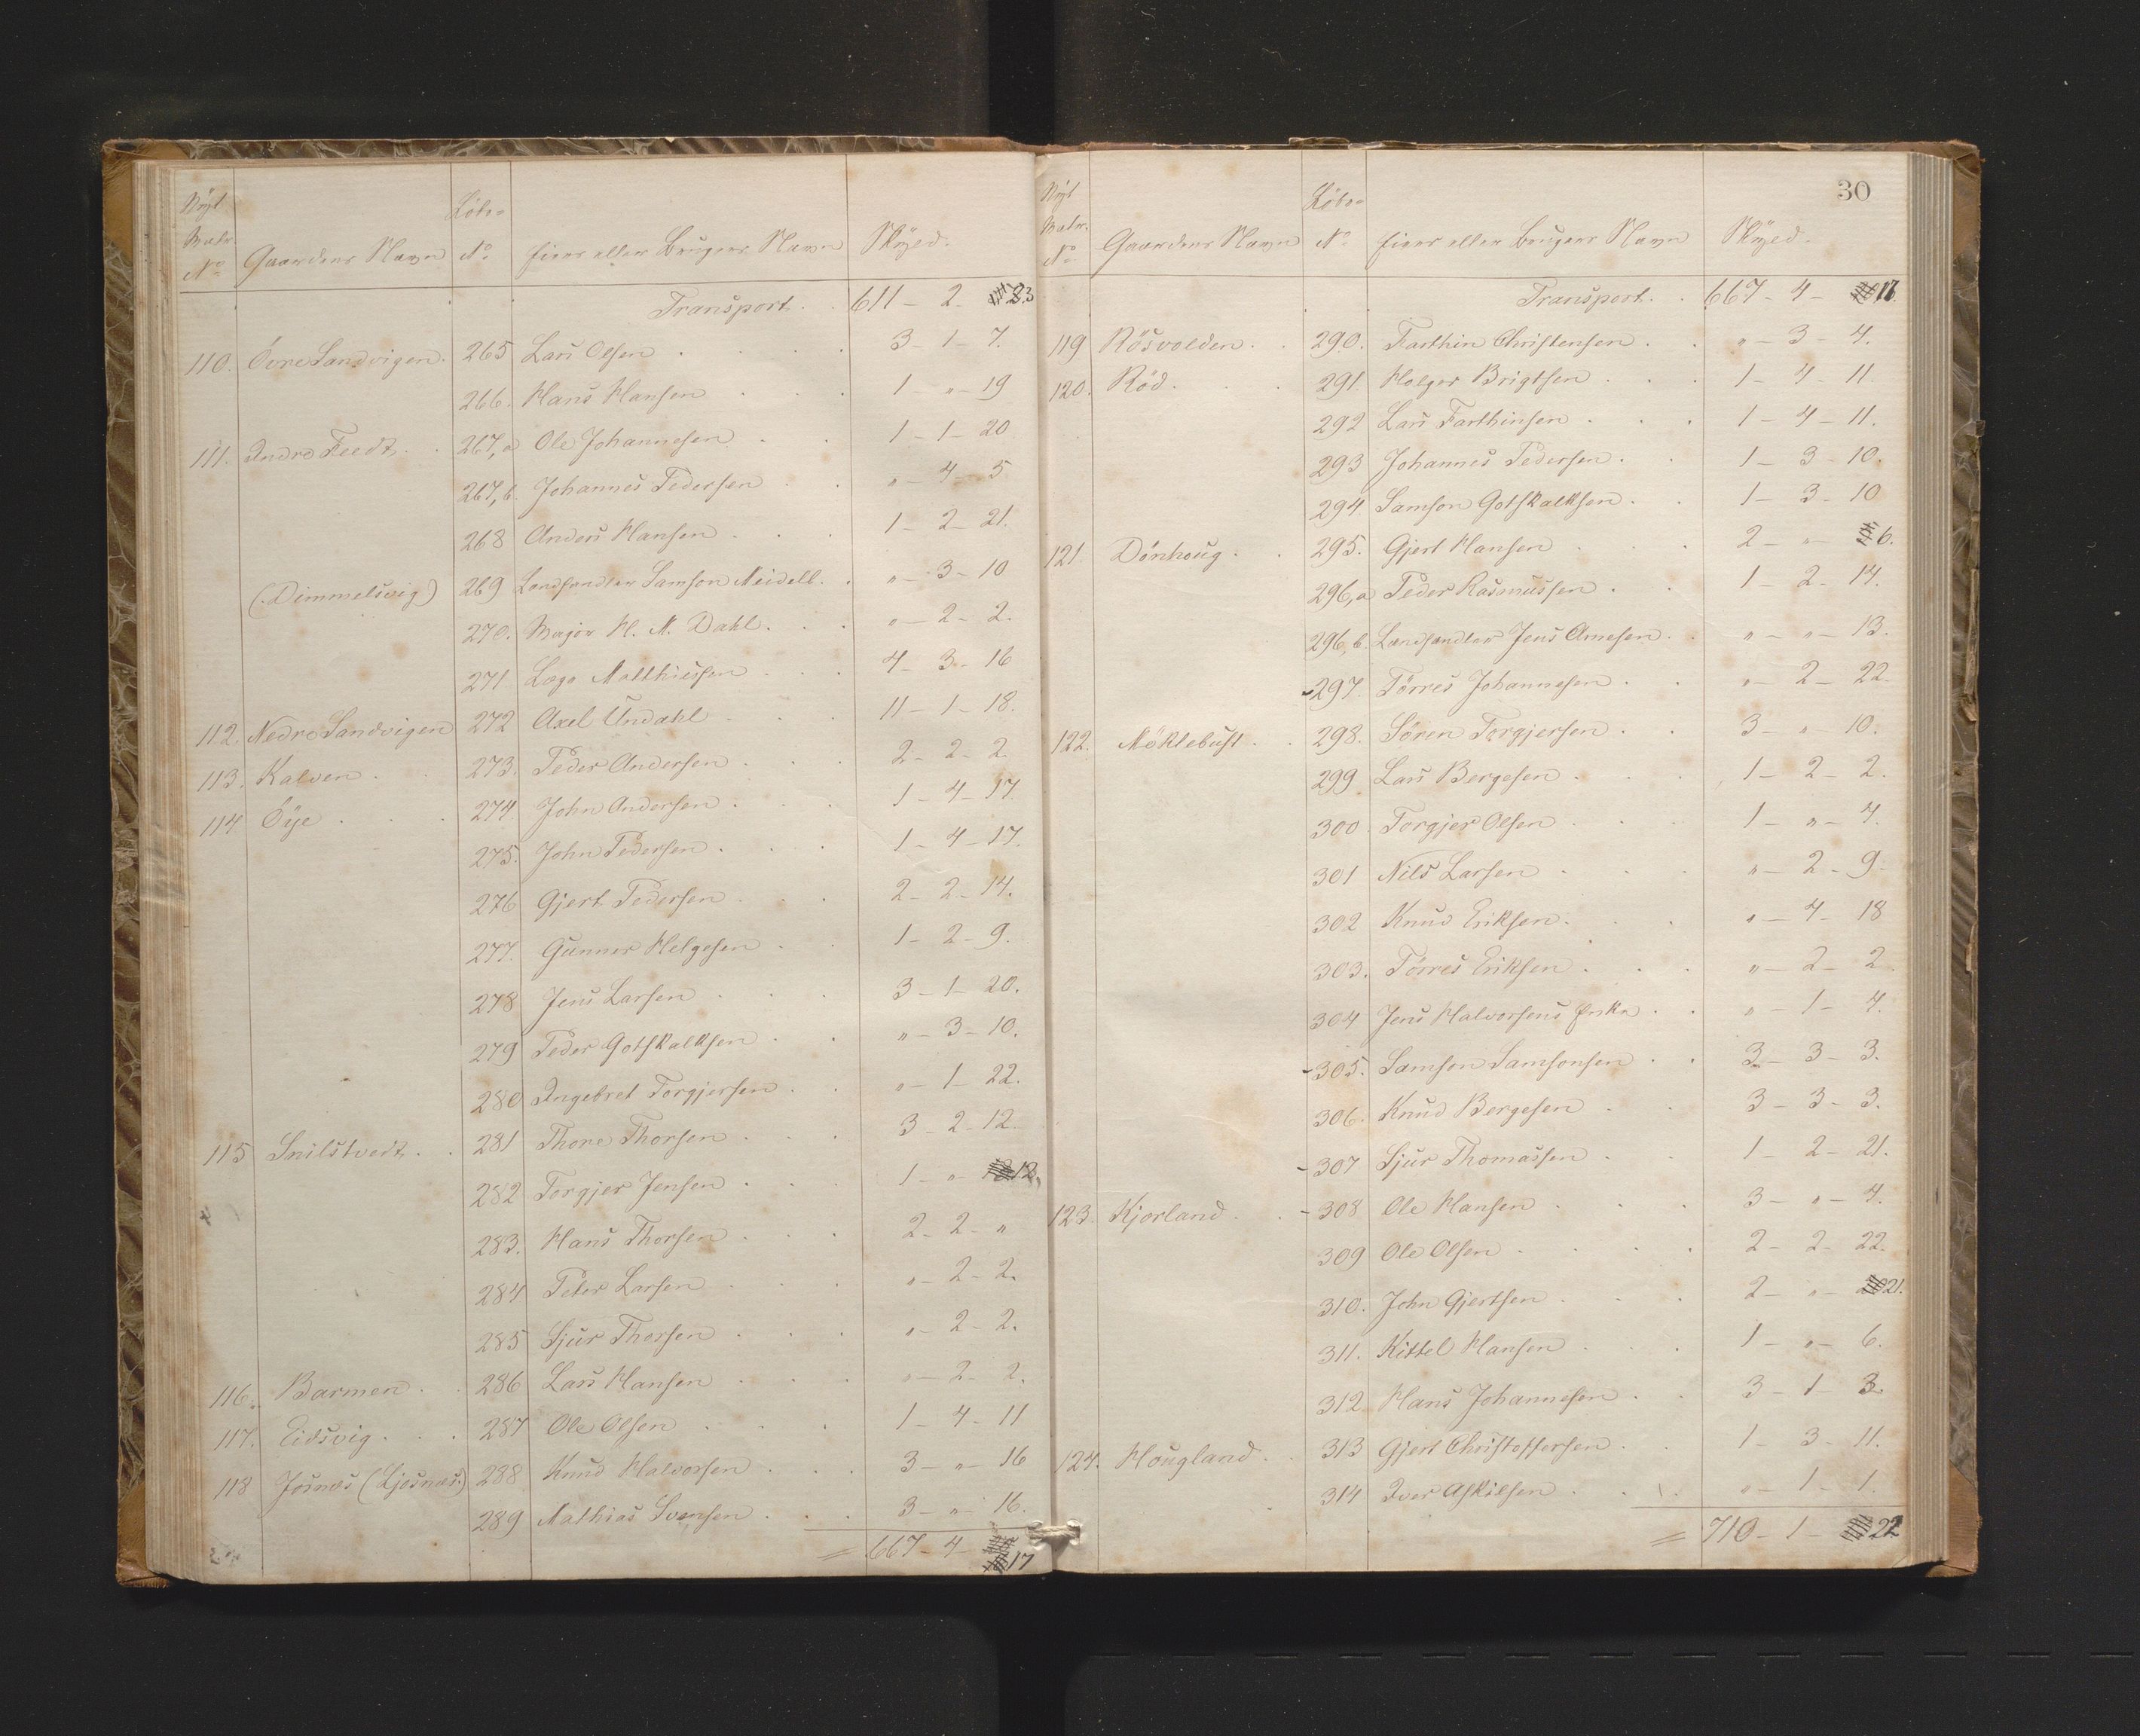 Nyt Matr. No Gaardens Navn Löbe- No Eiers eller Brugers Navn Skyld.
Transport. . 611 – 2 – 23
110. Övre Sandvigen. 265 Lars Olsen . . . . 3 – 1 – 7.
266. Hans Hansen . . . 1 – " – 19
111. Indre Tvedt. . 267,a Ole Johannesen . . 1 – 1 – 20
267,b. Johannes Pedersen . . " – 4 – 5
268 Anders Hansen . . . 1 – 2 – 21.
(Dimmelsvig) 269 Landhandler Samson Meidell. . " – 3 – 10
270. Major H. N. Dahl. . . " – 2 – 2.
271 Lage Matthiesen . . . 4 – 3 – 16
112. Nedre Sandvigen 272 Axel Undahl . . . 11 – 1 – 18.
113. Kalven . . 273. Peder Andersen . . . 2 – 2 – 2
114 Öye . . . 274. John Andersen . . . 1 – 4 – 17
275. John Pedersen . . . 1 – 4 – 17.
276 Gjert Pedersen . . . 2 – 2 – 14.
277. Gunner Helgesen . . 1 – 2 – 9.
278 Jens Larsen . . . 3 – 1 – 20.
279 Peder Gotskalksen . . " – 3 – 10.
280 Ingebret Torgjersen . . " – 1 – 22.
115 Snilstvedt. . 281 Thore Thorsen . . . 3 – 2 – 12.
282 Torgjer Jensen . . . 1 – " – 12.
283. Hans Thorsen . . . 2 – 2 – "
284 Peter Larsen . . . " – 2 – 2.
285 Sjur Thorsen . . . " – 2 – 2.
116. Barmen. . 286 Lars Hansen . . . " – 2 – 2.
117. Eidsvig. . . 287 Ole Olsen . . . 1 – 4 – 11
118 Josnæs (Ljosnæs) 288 Knud Halvorsen . . . 3 – " – 16
289 Mathias Svensen . . . 3 – " – 16.
= 667 – 4 – 17
30
Nyt Matr. No Gaardens Navn Löbe- No Eiers eller Brugers Navn Skyld.
Transport. . 667 – 4 – 17.
119 Rösvolden. . 290. Farthin Christensen . . " – 3 – 4.
120. Röd. . . 291. Holger Brigtsen . . . 1 – 4 – 11
292 Lars Farthinsen . . . 1 – 4 – 11.
293 Johannes Pedersen . . 1 – 3 – 10.
294. Samson Gotskalksen . . 1 – 3 – 10
121. Dönhoug. . 295. Gjert Hansen . . . 2 – " – 6.
296,a Peder Rasmussen . . 1 – 2 – 14.
296,b. Landhandler Jens Arnesen. . " – " – 13.
297. Törres Johannesen . . " – 2 – 22.
122. Möklebust. . 298. Sören Torgjersen . . 3 – " – 10.
299 Lars Bergesen . . . 1 – 2 – 2.
300 Torgjer Olsen . . . 1 – " – 4.
301 Nils Larsen . . . " – 2 – 9.
302 Knud Eriksen . . . " – 4 – 18
303. Törres Eriksen . . . " – 2 – 2
304 Jens Halvorsens Enke . . " – 1 – 4.
305. Samson Samsonsen . . 3 – 3 – 3.
306. Knud Bergesen . . 3 – 3 – 3.
307 Sjur Thomassen . . 1 – 2 – 21.
123. Kjorland. . 308 Ole Hansen . . . 3 – " – 4.
309 Ole Olsen . . . . 2 – 2 – 22.
310. John Gjertsen . . . 2 – " – 21.
311. Kittel Hansen . . . 1 – " – 6.
312 Hans Johannesen . . 3 – 1 – 3.
124. Hougland. . 313 Gjert Christoffersen . . 1 – 3 – 11.
314 Iver Askilsen . . . " – 1 – 1.
= 710 – 1 – 22